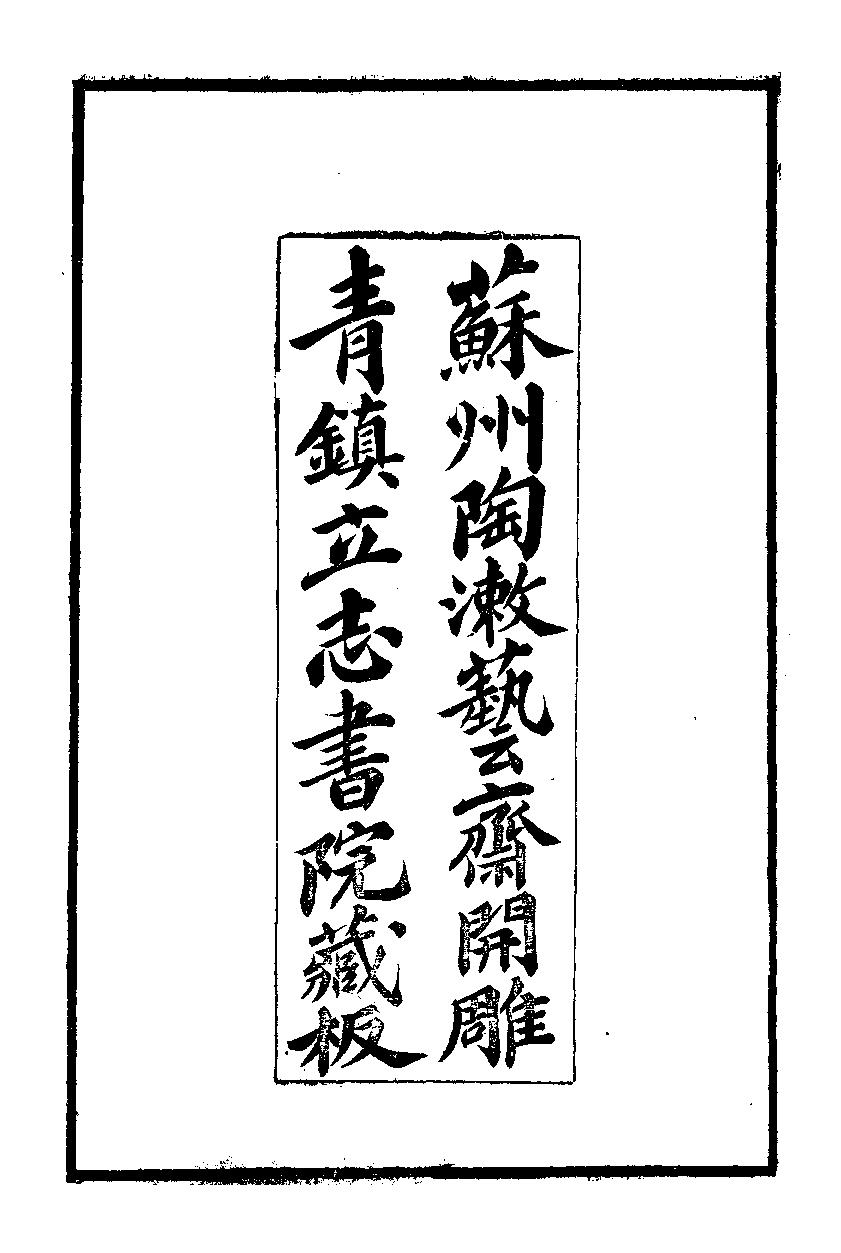 蘇州陶漱藝齋開雕
青鎮立志書院藏板